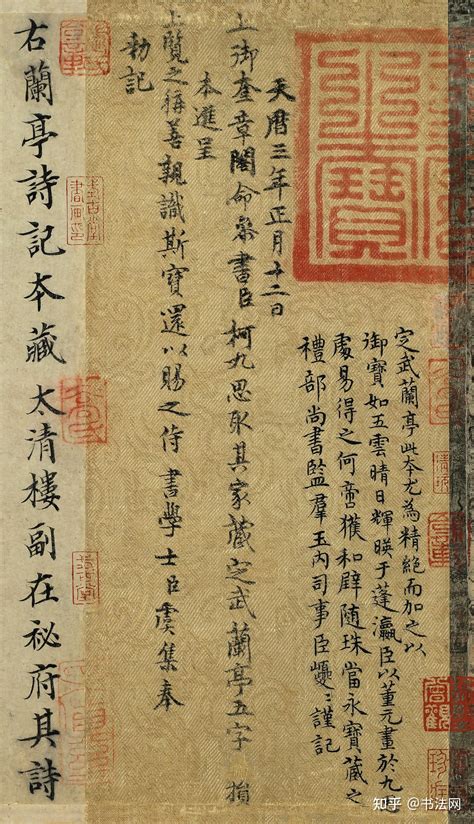 定武蘭亭此本尤為精絕而加之以
御寶如五雲晴日輝暎于蓬瀛臣以董元畫於九思
處易得之何啻獲和璧随珠當永寶藏之
禮部尚書監羣玉內司事臣巙謹記
天曆三年正月十二日
上御奎章閣命叅書臣柯九思取其家藏定武蘭亭五字損
本進呈
上覽之稱善親識斯寶還以賜之侍書學士臣虞集奉
勑記
右蘭亭詩記本藏太清樓副在祕府其詩
知乎 @书法网